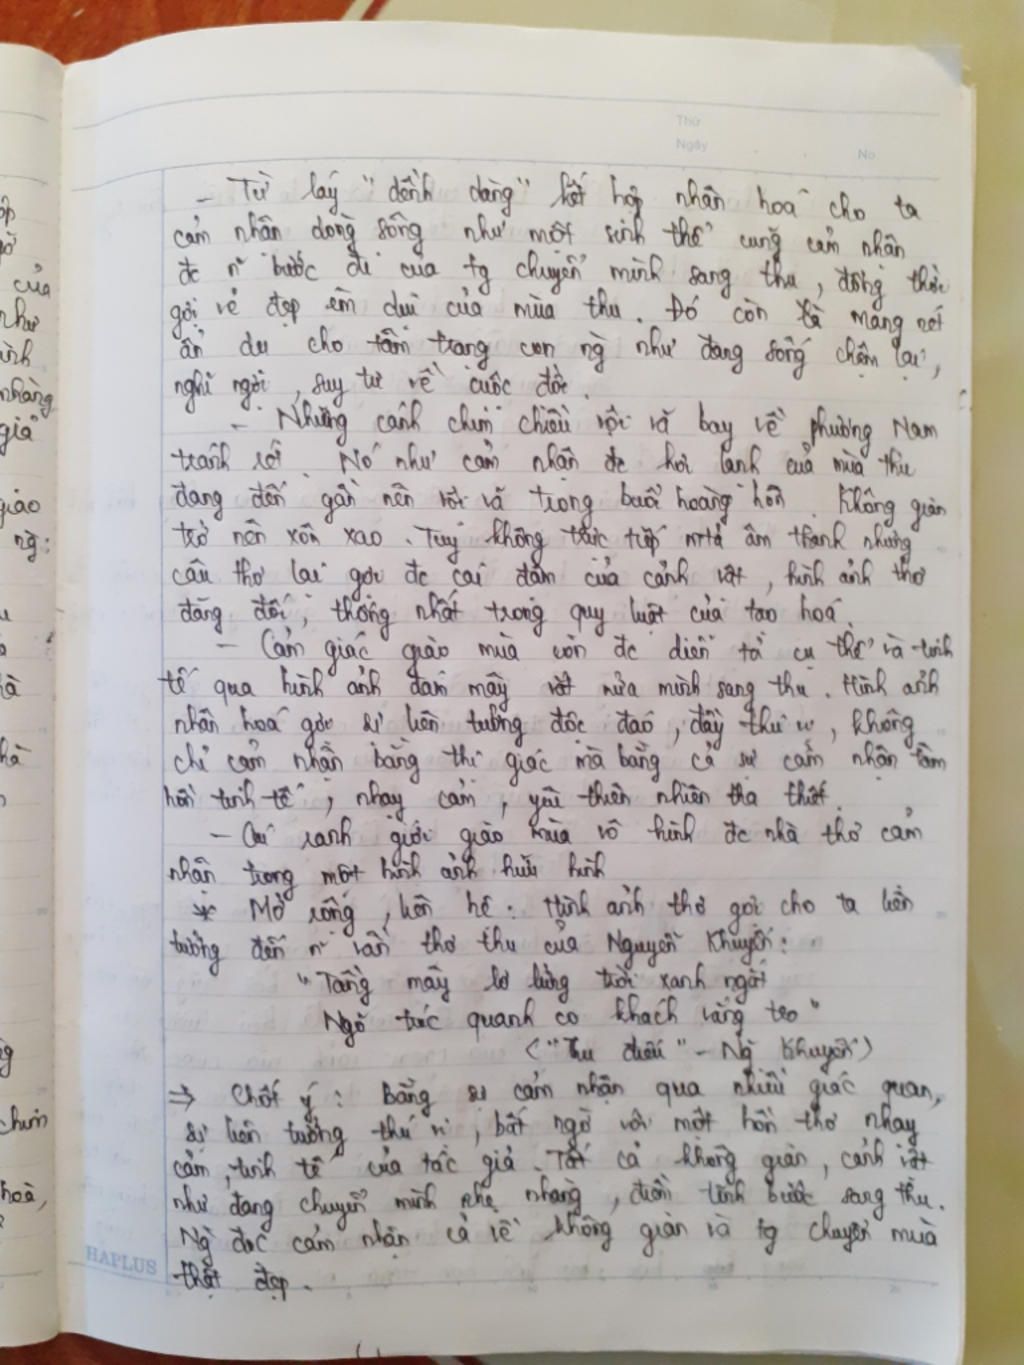 Thứ
Ngày
No
- Từ láy "dềnh dàng" kết hợp nhân hoá cho ta
cảm nhận dòng sông như một sinh thể cũng cảm nhận
đc n~ bước đi của tg chuyển mình sang thu, đồng thời
gợi vẻ đẹp êm dịu của mùa thu. Đó còn là mang nét
ẩn dụ cho tâm trạng con ng như đang sống chậm lại,
nghỉ ngơi, suy tư về cuộc đời.
- Những cánh chim chiều vội vã bay về phương Nam
tránh rét. Nó như cảm nhận đc hơi lạnh của mùa thu
đang đến gần nên vội vã trong buổi hoàng hôn. Không gian
trở nên xôn xao. Tuy không trực tiếp mtả âm thanh nhưng
câu thơ lại gợi đc cái của cảnh vật, hình ảnh thơ
đăng đối, thống nhất trong quy luật của tạo hoá.
- Cảm giác giao mùa còn đc diễn tả cụ thể và tinh
tế qua hình ảnh đám mây vắt nửa mình sang thu. Hình ảnh
nhân hoá gợi sự liên tưởng độc đáo, đầy thú vị, không
chỉ cảm nhận bằng thị giác mà bằng cả sự cảm nhận tâm
hồn tinh tế, nhạy cảm, yêu thiên nhiên tha thiết.
- Cái ranh giới giao mùa vô hình đc nhà thơ cảm
nhận trong một hình ảnh hữu hình
* Mở rộng, liên hệ: Hình ảnh thơ gợi cho ta liên
tưởng đến n~ vần thơ thu của Nguyễn Khuyến:
"Tầng mây lơ lửng trời xanh ngắt
Ngõ trúc quanh co khách vắng teo"
("Thu điếu" - Ng Khuyến)
⇒ Chốt ý: Bằng sự cảm nhận qua nhiều giác quan,
sự liên tưởng thú vị, bất ngờ với một hồn thơ nhạy
cảm, tinh tế của tác giả. Tất cả không gian, cảnh vật
như đang chuyển mình nhẹ nhàng, điềm tĩnh bước sang thu.
Ng đọc cảm nhận cả về không gian và tg chuyển mùa
thật đẹp.
HAPLUS
của
như
nhàng
giả
giao
ng:
chim
hoà,